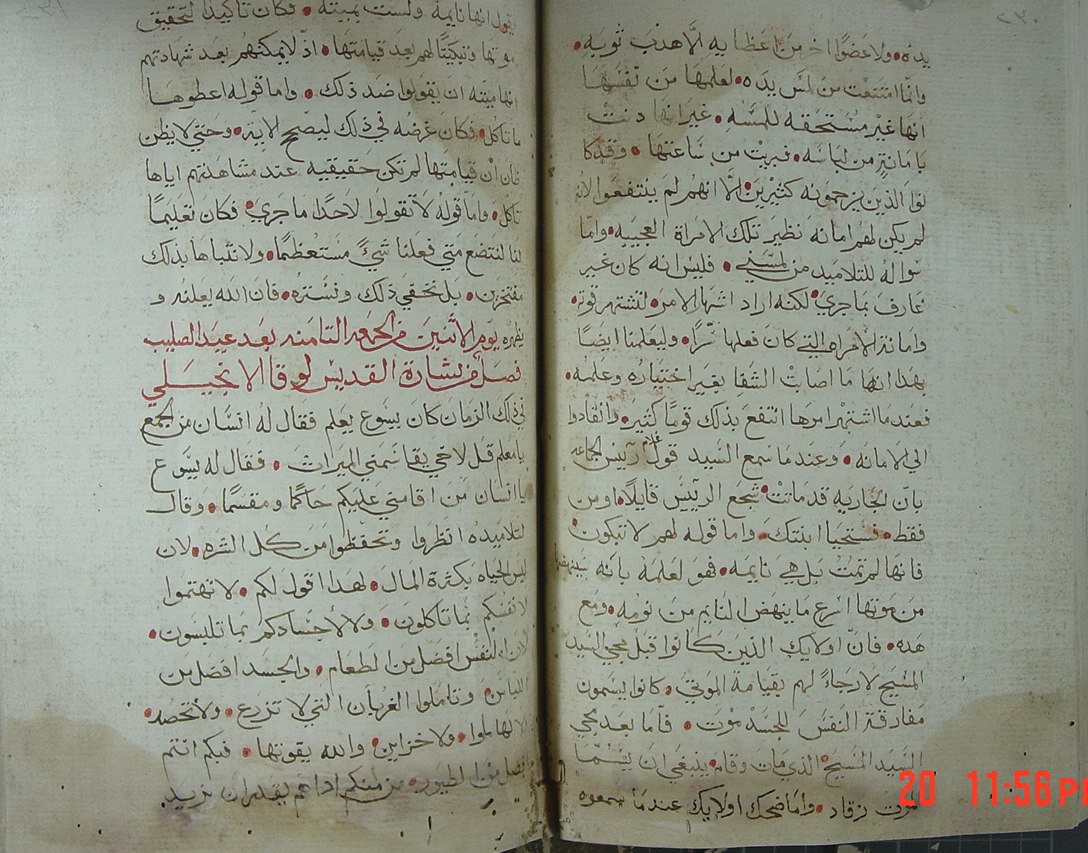 يده ولا عضوًا اخر من اعضايه الا هدب ثوبه
وانما امتنعت من لمس يده لعلمها من نفسها
انها غير مستحقه للمسه غير انها دنت
بامانةٍ من لباسه فبريت من ساعتها وقد كا
نوا الذين يزحمونه كثيرين الا انهم لم ينتفعوا لانه
لم يكن لهم امانه نظير تلك الامراة العجيبه واما
سواله للتلاميد من لمسني فليس انه كان غير
عارف بما جري لكنه اراد اشهار الامر لتشتهر قوته
وامانة الامراه التي كان فعلها سرًا وليعلمنا ايضًا
بهدا انها ما اصابت الشفا بغير اختياره وعلمه
فعند ما اشتهر امرها انتفع بذلك قومًا كثير وانقادوا
الي الامانه وعندما سمع السيد قول غلام رييس الجماعه
بان الجاريه قد ماتت شجع الرييس قايلًا اومن
فقط فستحيا ابنتك واما قوله لهم لا تبكون
فانها لم تمت بل هي نايمه فهو لعلمه بانه سينهضها
من موتها اسرع ما ينهض النايم من نومه ومع
هده فان اولايك الدين كانوا قبل مجي السيد
المسيح لا رجاءً لهم بقيامة الموتي كانوا يسمون
مفارقة النفس للجسد موت فاما بعد مجي
السيد المسيح الذي مات وقام ينبغي ان يسما
الموت رقاد واما ضحك اولايك عندما سمعوه
يقول انها نايمة وليست بميتة فكان تاكيدًا لتحقيق
موتها وتبكيتًا لهم بعد قيامتها اذ لا يمكنهم بعد شهادتهم
انها ميته ان يقولوا ضد ذلك واما قوله اعطوها
ما تاكل فكان غرضه في ذلك ليصح الايه وحتي لا يظن
ظان ان قيامتها لم تكن حقيقيه عند مشاهدتهم اياها
تاكل واما قوله لا تقولوا لاحدًا ما جري فكان تعليمًا
لنا لنتضع متي فعلنا شيً مستعظمًا ولا نتباها بذلك
مفتخرين بل نخفي ذلك ونستره فان الله يعلنه و
يظهره يوم الاثنين من الجمعه التامنه بعد عيد الصليب
فصل من بشارة القديس لوقا الانجيلي
في ذلك الزمان كان يسوع يعلم فقال له انسان من الجمع
يا معلم قل لاخي يقاسمني الميراث فقال له يسوع
يا انسان من اقامني عليكم حاكمًا ومقسمًا وقال
لتلاميده انظروا وتحفظوا من كل الشره لان
ليس الحياه بكثرة المال لهدا اقول لكم لا تهتموا
لانفسكم بما تاكلون ولا لاجسادكم بما تلبسون
لان النفس افضل من الطعام والجسد افضل من
اللباس وتاملوا الغربان التي لا تزرع ولا تحصد
لا لها اهرا ولا خزاين والله يقوتها فبكم انتم
افضل من الطيور من منكم اذا هم يقدر ان يزيد